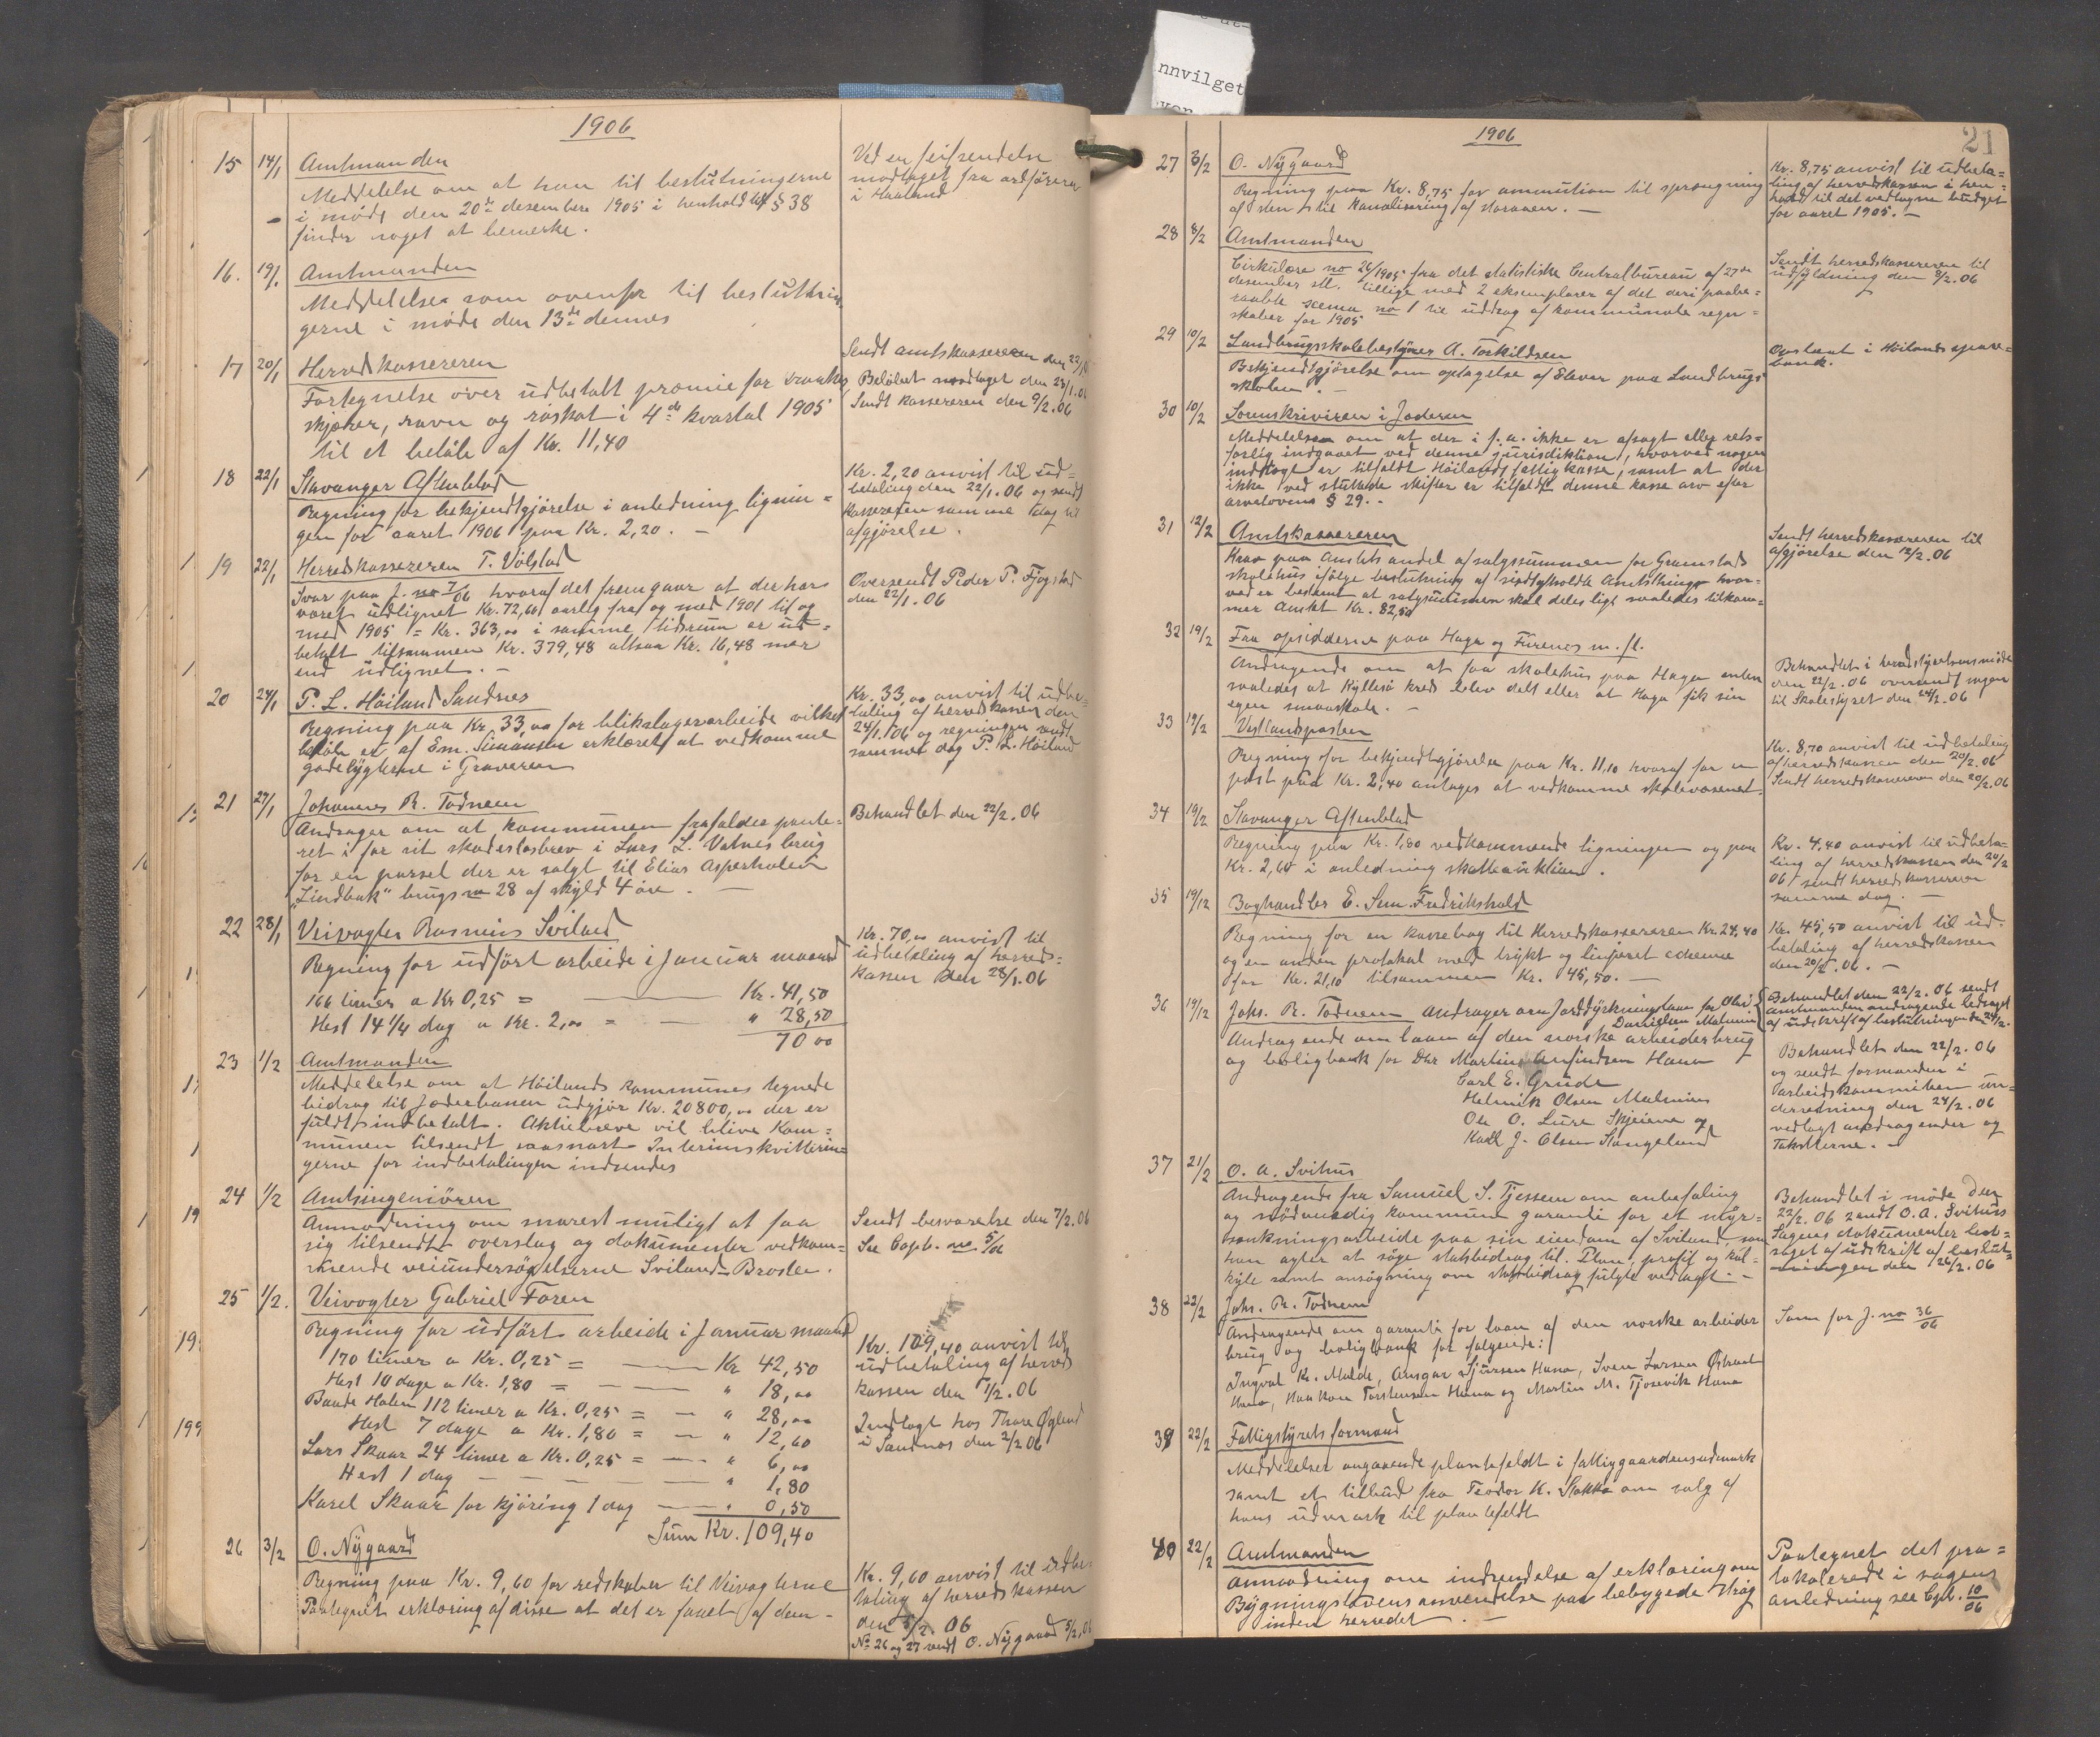 nnvilget
1906
15 14/1 Amtmanden
Meddelelse om at han til beslutningerne
i møde den 20de desember 1905 i henhold til § 38
finder noget at bemerke.
Ved en feilsendelse
modtaget fra ordføreren
i Haaland
16. 19/1 Amtmanden
Meddelelse som ovenfor til beslutnin
gerne i møde den 13de dennes
17 20/1 Herredskassereren
Fortegnelse over udbetalt præmie for kraaker
skjærer, ravn og røskat i 4de kvartal 1905
til et beløb af Kr. 11,40
Sendt amtskassereren den 22/1
Beløbet modtaget den 23/1.06
Sendt kassereren den 9/2.06
18 22/1 Stavanger Aftenblad
Regning for bekjendtgjørelse i anledning lignin=
gen for aaret 1906 paa Kr. 2,20. —
Kr. 2,20 anvist til ud=
betaling den 22/1.06 og sendt
kassereren samme dag til
afgjørelse.
19 22/1 Herredskassereren T. Vølstad
Svar paa J. no 7/06 hvoraf det fremgaar at der har
været udlignet Kr. 72,60 aarlig fra og med 1901 til og
med 1905 = Kr. 363,00 i samme tidsrum er ud=
betalt tilsammen Kr. 379,48 altsaa Kr. 16,48 mer
end udlignet. —
Oversendt Peder P. Fjogstad
den 22/1.06
20 24/1 P. L. Høiland Sandnes
Regning paa Kr. 33,00 for blikslagerarbeide vilket
beløb er af Em. Simonsen erklæret at vedkomme
gadelygterne i Graveren
Kr. 33,00 anvist til udbe=
taling af herredskassen den
24/1.06 og regningen sendt
samme dag P. L. Høiland
21 27/1 Johannes R. Todnem
Andrager om at kommunen frafalder pante=
ret i for sit skadesløsbrev i Lars L. Vatnes brug
for en parsel der er solgt til Elias Asperholen
"Lindbak" brugs no 28 af skyld 4 øre. —
Behandlet den 22/2.06
22 28/1 Veivogter Rasmus Sviland
Regning for udført arbeide i Januar maaned
166 timer a Kr 0,25 = — Kr. 41,50
Hest 14 1/4 dag a Kr. 2,00 = — " 28,50
70 00
Kr. 70,00 anvist til
udbetaling af herreds=
kassen den 28/1.06
23 1/2 Amtmanden
Meddelelse om at Høilands kommunes tegnede
bidrag til Jæderbanen udgjør Kr. 20800,00 der er
fuldt indbetalt. Aktiebreve vil blive Kom=
munen tilsendt saasnart Interimskvitterin=
gerne for indbetalingen indsendes
24 1/2 Amtsingeniøren
Anmodning om snarest muligt at faa
sig tilsendt overslag og dokumenter vedkom=
mende veiundersøgelserne Sviland-Brosle.
Sendt besvarelse den 7/2.06
Se Copb. no 5/06
25 1/2. Veivogter Gabriel Foren
Regning for udført arbeide i Januar maaned
170 timer a Kr. 0,25 = — Kr 42,50
Hest 10 dage a Kr. 1,80 = — " 18,00
Baade Holen 112 timer a Kr. 0,25 = — " 28,00
Hest 7 dage a Kr. 1,80 = — " 12,60
Lars Skaar 24 timer a Kr. 0,25 = — " 6,00
Hest 1 dag — — — " 1,80
Karel Skaar for kjøring 1 dag — " 0,50
Sum Kr. 109,40
Kr. 109,40 anvist til
udbetaling af herreds
kassen den 1/2.06
Indlagt hos Thore Øglend
i Sandnes den 2/2 06
26 3/2 O. Nygaard
Regning paa Kr. 9,60 for redskaber til Veivogterne
Paategnet erklæring af disse at det er faaet af dem —
Kr. 9,60 anvist til udbe
taling af herredskassen
den 5/2.06
No 26 og 27 sendt O. Nygaard 5/2.06
1906
21
27 3/2 O. Nygaard
Regning paa Kr. 8,75 for ammution til sprængning
af sten til Kanalisering af Storaaen. —
Kr. 8,75 anvist til udbeta=
ling af herredskassen i hen=
hold til det vedtagne budget
for aaret 1905. —
28 8/2 Amtmanden
Cirkulære no 26/1905 fra det statistiske Centralbureau af 27de
desember sll. tillige med 2 eksemplarer af det deri paabe=
raabte scema no 1 til uddrag af kommunale regn=
skaber for 1905
Sendt herredskassereren til
udfyldning den 8/2.06
29 10/2 Landbrugsskolebestyrer A. Torkildsen
Bekjendtgjørelse om optagelse af Elever paa Landbrugs
skolen. —
Opslaat i Høilands spare=
bank.
30 10/2 Sorenskriveren i Jæderen
Meddelelse om at der i f. a. ikke er afsagt eller rets=
forlig indgaaet ved denne jurisdiktion, hvorved nogen
indtægt er tilfaldt Høilands fattigkasse, samt at der
ikke ved sluttede skifter er tilfaldt denne kasse arv efter
arvelovens § 29. —
31 12/2 Amtskassereren
Krav paa Amtets andel af salgssummen for Gramstad
skolehus ifølge beslutning af sidstholdte Amtsthing hvor=
ved er bestemt at salgssummen skal deles ligt saaledes tilkom=
mer Amtet Kr. 82,50
Sendt herredskassereren til
afgjørelse den 12/2.06
32 19/2 Fra opsidderne paa Hage og Furenes m. fl.
Andragende om at faa skolehus paa Hage enten
saaledes at Kyllesø kreds blev delt eller at Hage fik sin
egen smaaskole. —
Behandlet i herredsstyrelsens møde
den 22/2.06 oversendt sagen
til Skolestyret den 24/2.06
33 19/2 Vestlandsposten
Regning for bekjendtgjørelse paa Kr. 11,10 hvoraf for en
post paa Kr. 2,40 antages at vedkomme skolevæsenet.
Kr. 8,70 anvist til udbetaling
af herredskassen den 20/2.06
Sendt herredskassereren den 20/2.06
34 19/2 Stavanger Aftenblad
Regning paa Kr. 1,80 vedkommende ligningen og paa
Kr. 2,60 i anledning skatteauktion.
Kr. 4.40 anvist til udbeta=
ling af herredskassen den 20/2
06 sendt herredskassereren
samme dag. —
35 19/12 Boghandler E. Sem Fredrikshald
Regning for en kassebog til Herredskassereren Kr. 24,40
og en anden protokol med trykt og linjeret schema
for Kr. 21,10 tilsammen Kr. 45,50. —
Kr. 45,50 anvist til ud=
betaling af herredskassen
den 20/2.06. —
36 19/12 Johs. R. Todnem andrager om Jorddyrkningslaan for Olai
Danielsen Malmin
Andragende om laan af den norske arbeiderbrug
og boligbank for Dhr Martin Arnfindsen Hana
Carl E. Grude
Helmik Olsen Malmin
Ole O. Lura Skjeiene og
Karl J. Olsen Stangeland
Behandlet den 22/2.06 sendt
amtmanden andragende ledsaget
af udskrift af beslutningen den 24/2.
Behandlet den 22/2.06
og sendt formanden i
arbeidskommiteen un=
derretning den 24/2.06
vedlagt andragender og
Taksterne. —
37 21/2 O. A. Svihus
Andragende fra Samuel S. Tjessem om anbefaling
og nødvendig kommune garanti for et myr=
sænkningsarbeide paa sin eiendom af Sviland, som
han agter at søge statsbidrag til. Plan, profil og kal=
kyle samt ansøgning om statsbidrag fulgte vedlagt. —
Behandlet i møde den
22/2.06 sendt O. A. Svihus
Sagens dokumenter led=
saget af udskrift af beslut=
ningen den 26/2.06
38 22/2 Johs. R. Todnem
Andragende om garanti for laan af den norske arbeider
brug og boligbank for følgende:
Ingval K. Malde, Ansgar Sjursen Hana, Sven Larsen Østraat
Hana, Haakon Torstensen Hana og Martin M. Tjosevik Hana
Som for J. no 36/06
39 22/2 Fattigstyrets formand
Meddelelser angaaende plantefeldt i fattiggaardens udmark
samt et tilbud fra Teodor K. Stokka om salg af
hans udmark til plantefeldt
40 22/2 Amtmanden
Anmodning om indsendelse af erklæring om
Bygningslovens anvendelse paa bebyggede strøg
inden herredet. —
Paategnet det pro=
tokolerede i sagens
anledning see Cpb. 10/06